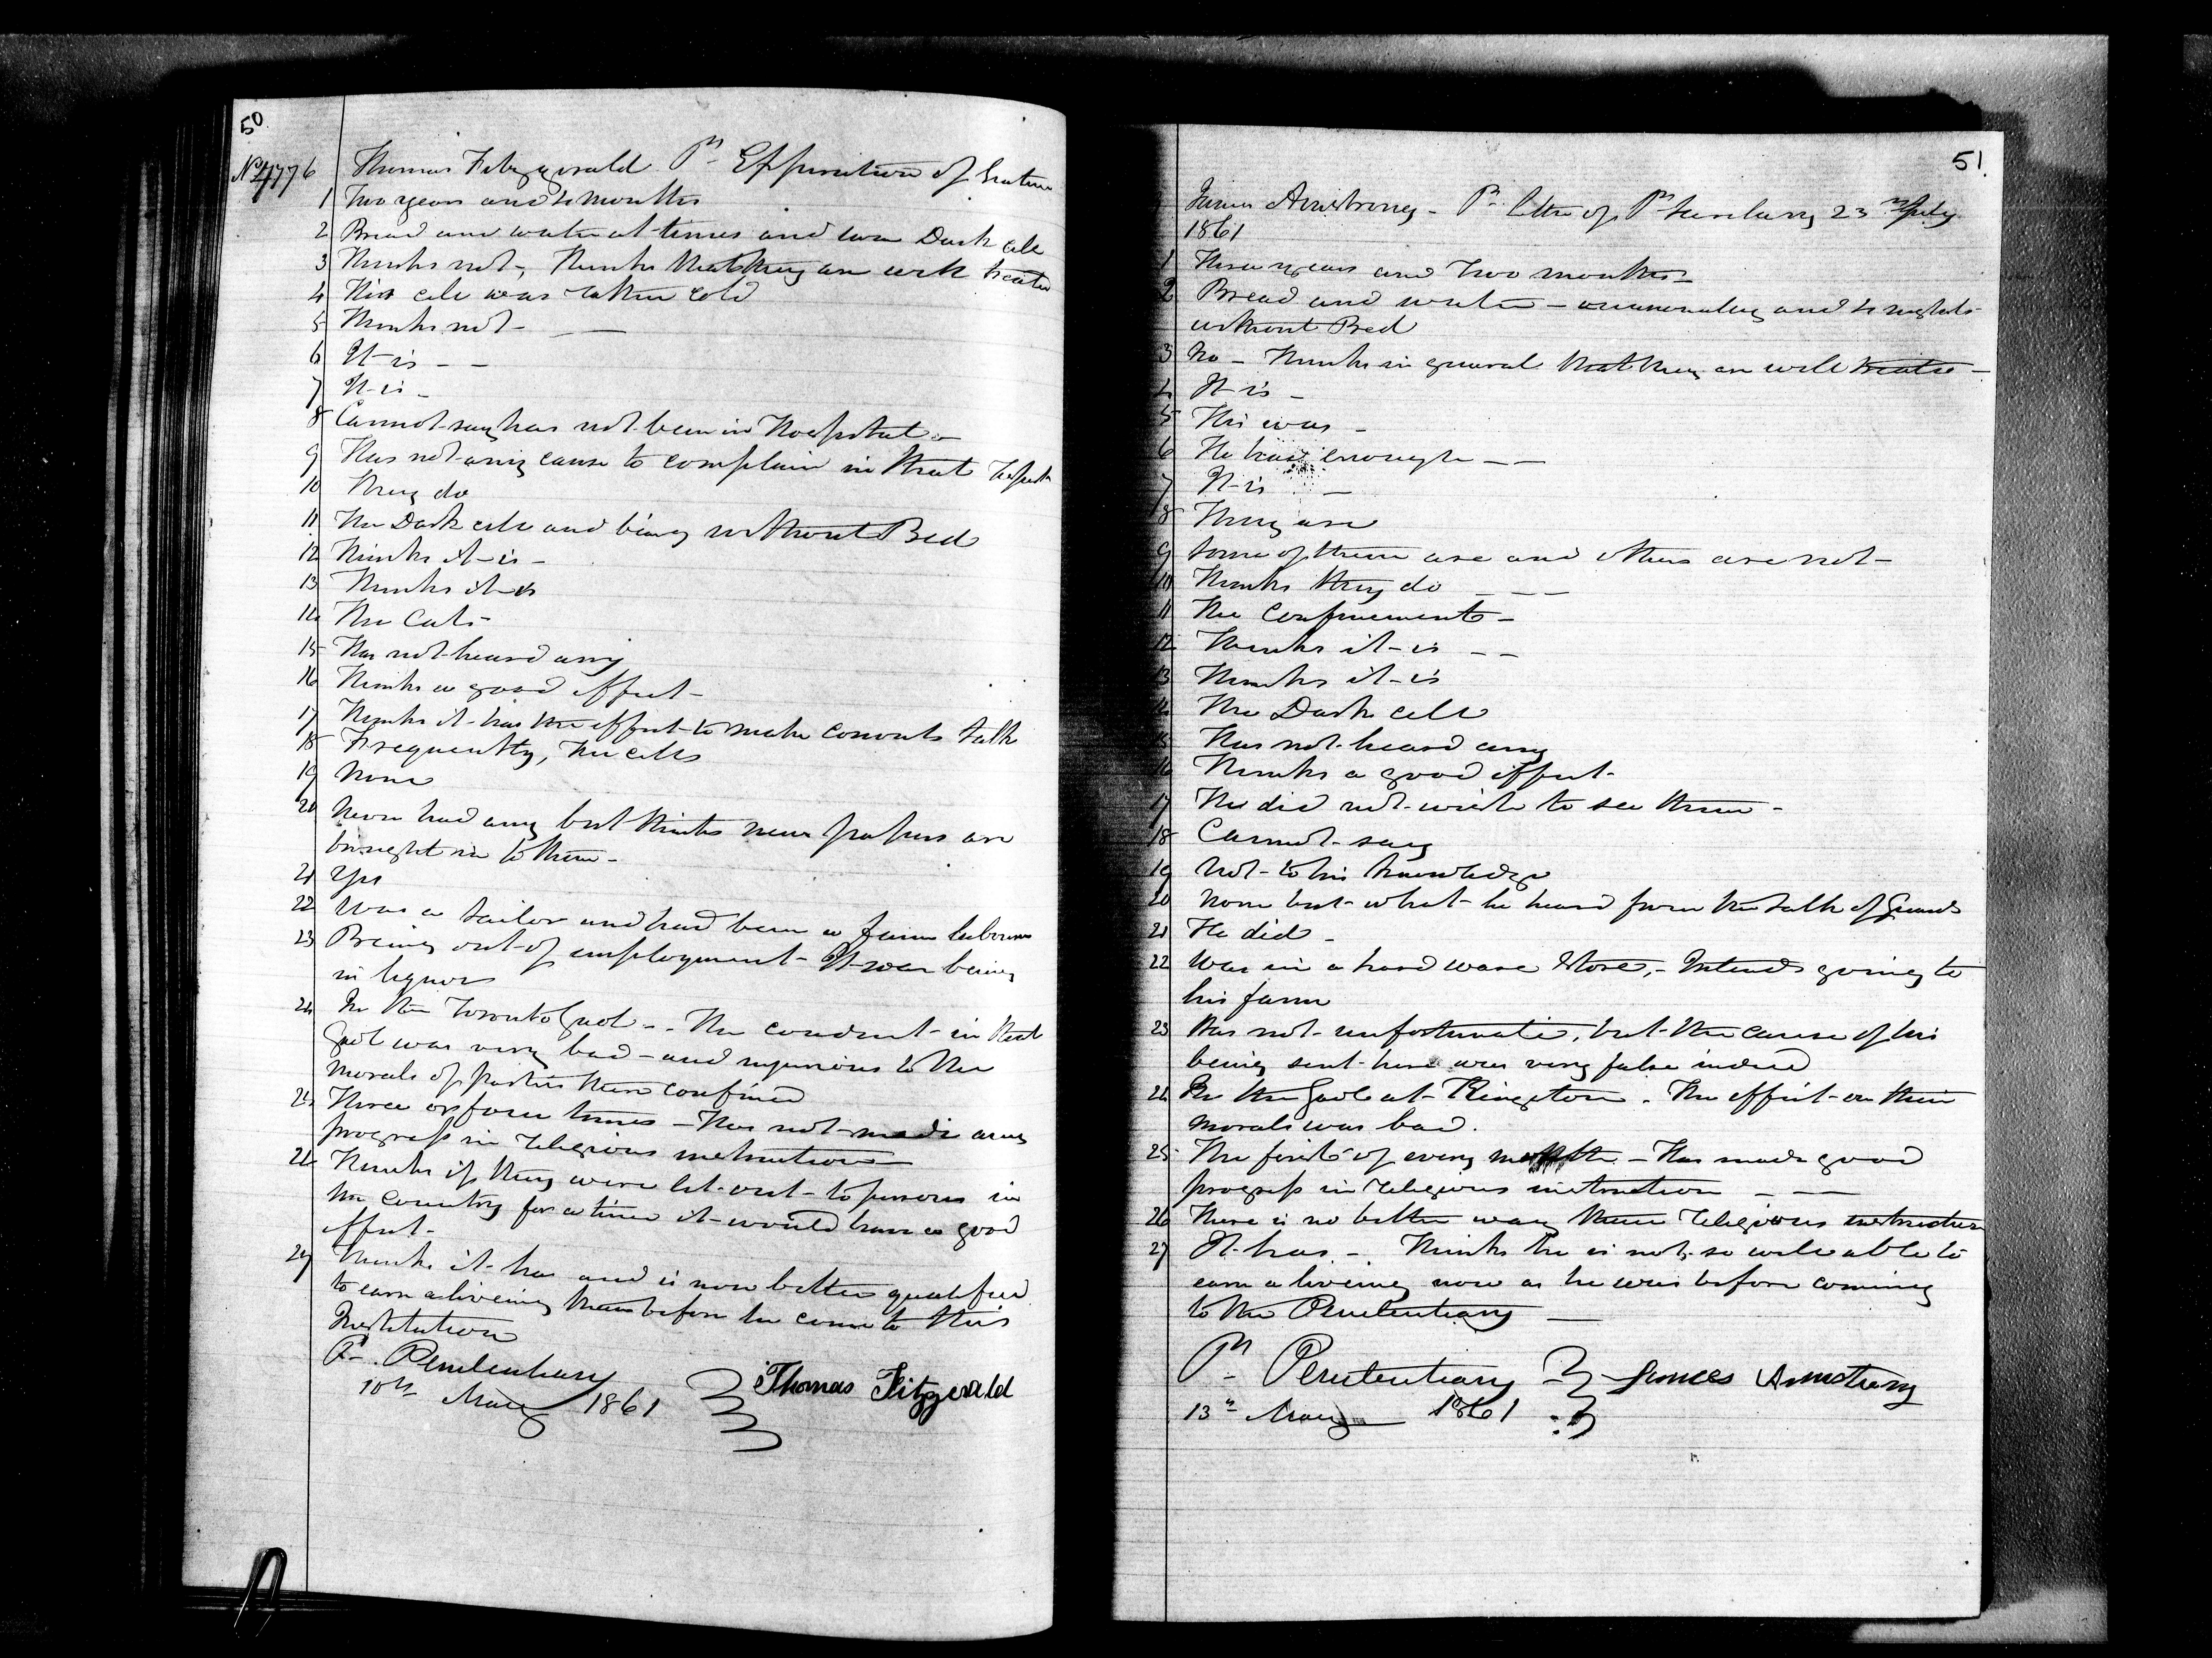 50
No 4776 Thomas Fitzgerald Pr Expiration of Sentence
1 Two years and 4 months
2 Bread and water at times and two Dark cell
3 Thinks not, Thinks that they are well treated
4 His cell was rather cold
5 Thinks not -
6 It is - -
7 It is -
8 Cannot say has not been in Hospital -
9 Has not any cause to complain in that respect
10 They do
11 The Dark cell and being without Bed
12 Thinks it is -
13 Thinks it is
14 The Cats -
15 Has not heard any
16 Thinks a good effect -
17 Thinks it has the effect to make convicts talk
18 Frequently, the cells
19 None
20 Never had any but thinks news papers are
brought in to them -
21 Yes
22 Was a tailor and had been a farm labourer
23 Being out of employment - It was being
in liquor
24 In the Toronto Gaol - - The conduct in that
Gaol was very bad - and injurious to the
morals of parties there confined
25 Three or four times - Has not made any
progress in religious instruction
26 Thinks if they were let out to persons in
the country for a time it would have a good
effect -
27 Thinks it has and is now better qualified
to earn a liveing than before he came to this
Institution
Pl. Penitentiary
10th May 1861 Thomas Fitzgerald
51
James Armstrong - Pr letter of Pl Secretary 23rd July
1861
1 Three years and two months -
2 Bread and water - occasionaly and 4 nights
without Bed
3 No - Thinks in general that they are well treated -
4 It is -
5 His was -
6 He has enough - -
7 It is -
8 They are
9 Some of them are and others are not -
10 Thinks they do - - -
11 The Confinement -
12 Thinks it is - -
13 Thinks it is
14 The Dark cell
15 Has not heard any
16 Thinks a good effect -
17 He did not wish to see them -
18 Cannot say
19 Not to his knowledge
20 None but what he heard from the talk of Guards
21 He did -
22 Was in a hard ware Store, - Intends going to
his farm
23 Was not unfortunate, but the cause of his
being sent here was very false indeed
24 In the Gaol at Kingston. The effect on their
morals was bad.
25 The first of every month - Has made good
progress in religious instruction - -
26 There is no better way than religious instruction
27 It has - Thinks he is not so well able to
earn a liveing now as he was before coming
to the Penitentiary
Pl Penitentiary James Armstrong
13th May 1861